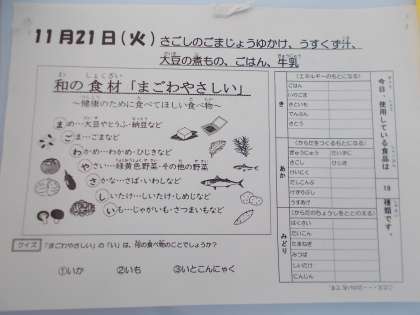 11月21日(火) さごしのごまじょうゆかけ、うすくず汁、
大豆の煮もの、ごはん、牛乳
和の食材「まごわやさしい」
～健康のために食べてほしい食べ物～
ま め…大豆やとうふ・納豆など
ご ま…ごまなど
わ かめ…わかめ・ひじきなど
や さい…緑黄色野菜・その他の野菜
さ かな…さば・いわしなど
し いたけ…しいたけ・しめじなど
い も…じゃがいも・さつまいもなど
クイズ 「まごわやさしい」の「い」は、何の食べ物のことでしょうか？
①いか ②いも ③いとこんにゃく
今日、使用している食品は
19
種類です。
き
(エネルギーのもとになる)
ごはん
さといも
でんぷん
さとう
あか
(からだをつくるもとになる)
ぎゅうにゅう だいず
さごし ひじき
けいにく
うすあげ
みどり
(からだのちょうしをととのえる)
はくさい
だいこん
たまねぎ
みつば
しいたけ
にんじん